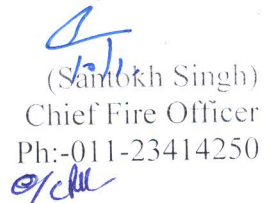 (Santokh Singh)
Chief Fire Officer
Ph:-011-23414250